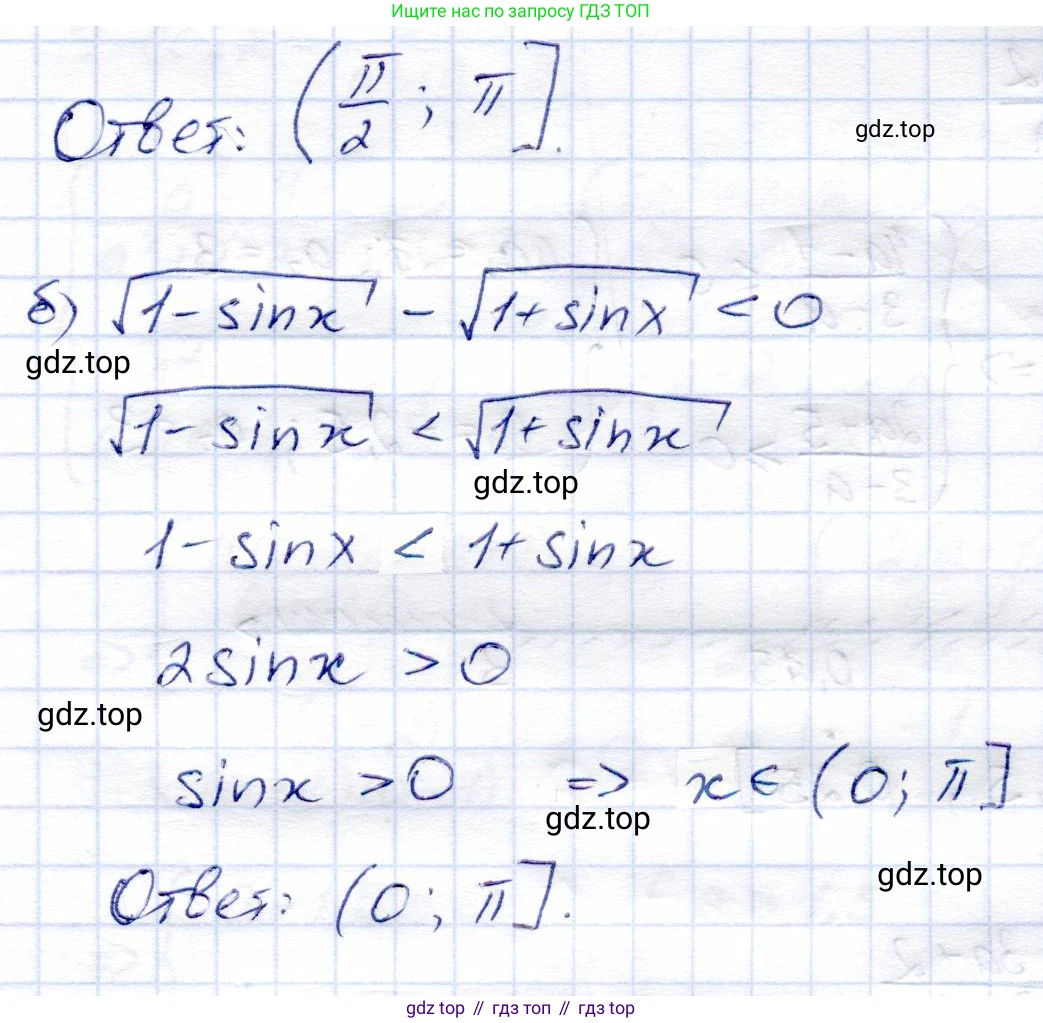 Ищите нас по запросу ГДЗ ТОП
Ответ: (π/2; π].
gdz.top
б) √(1 - sinx) - √(1 + sinx) < 0
gdz.top
√(1 - sinx) < √(1 + sinx)
gdz.top
1 - sinx < 1 + sinx
2 sinx > 0
gdz.top
sinx > 0 => x ∈ (0; π]
gdz.top
gdz.top
Ответ: (0; π].
gdz top // гдз топ // gdz top